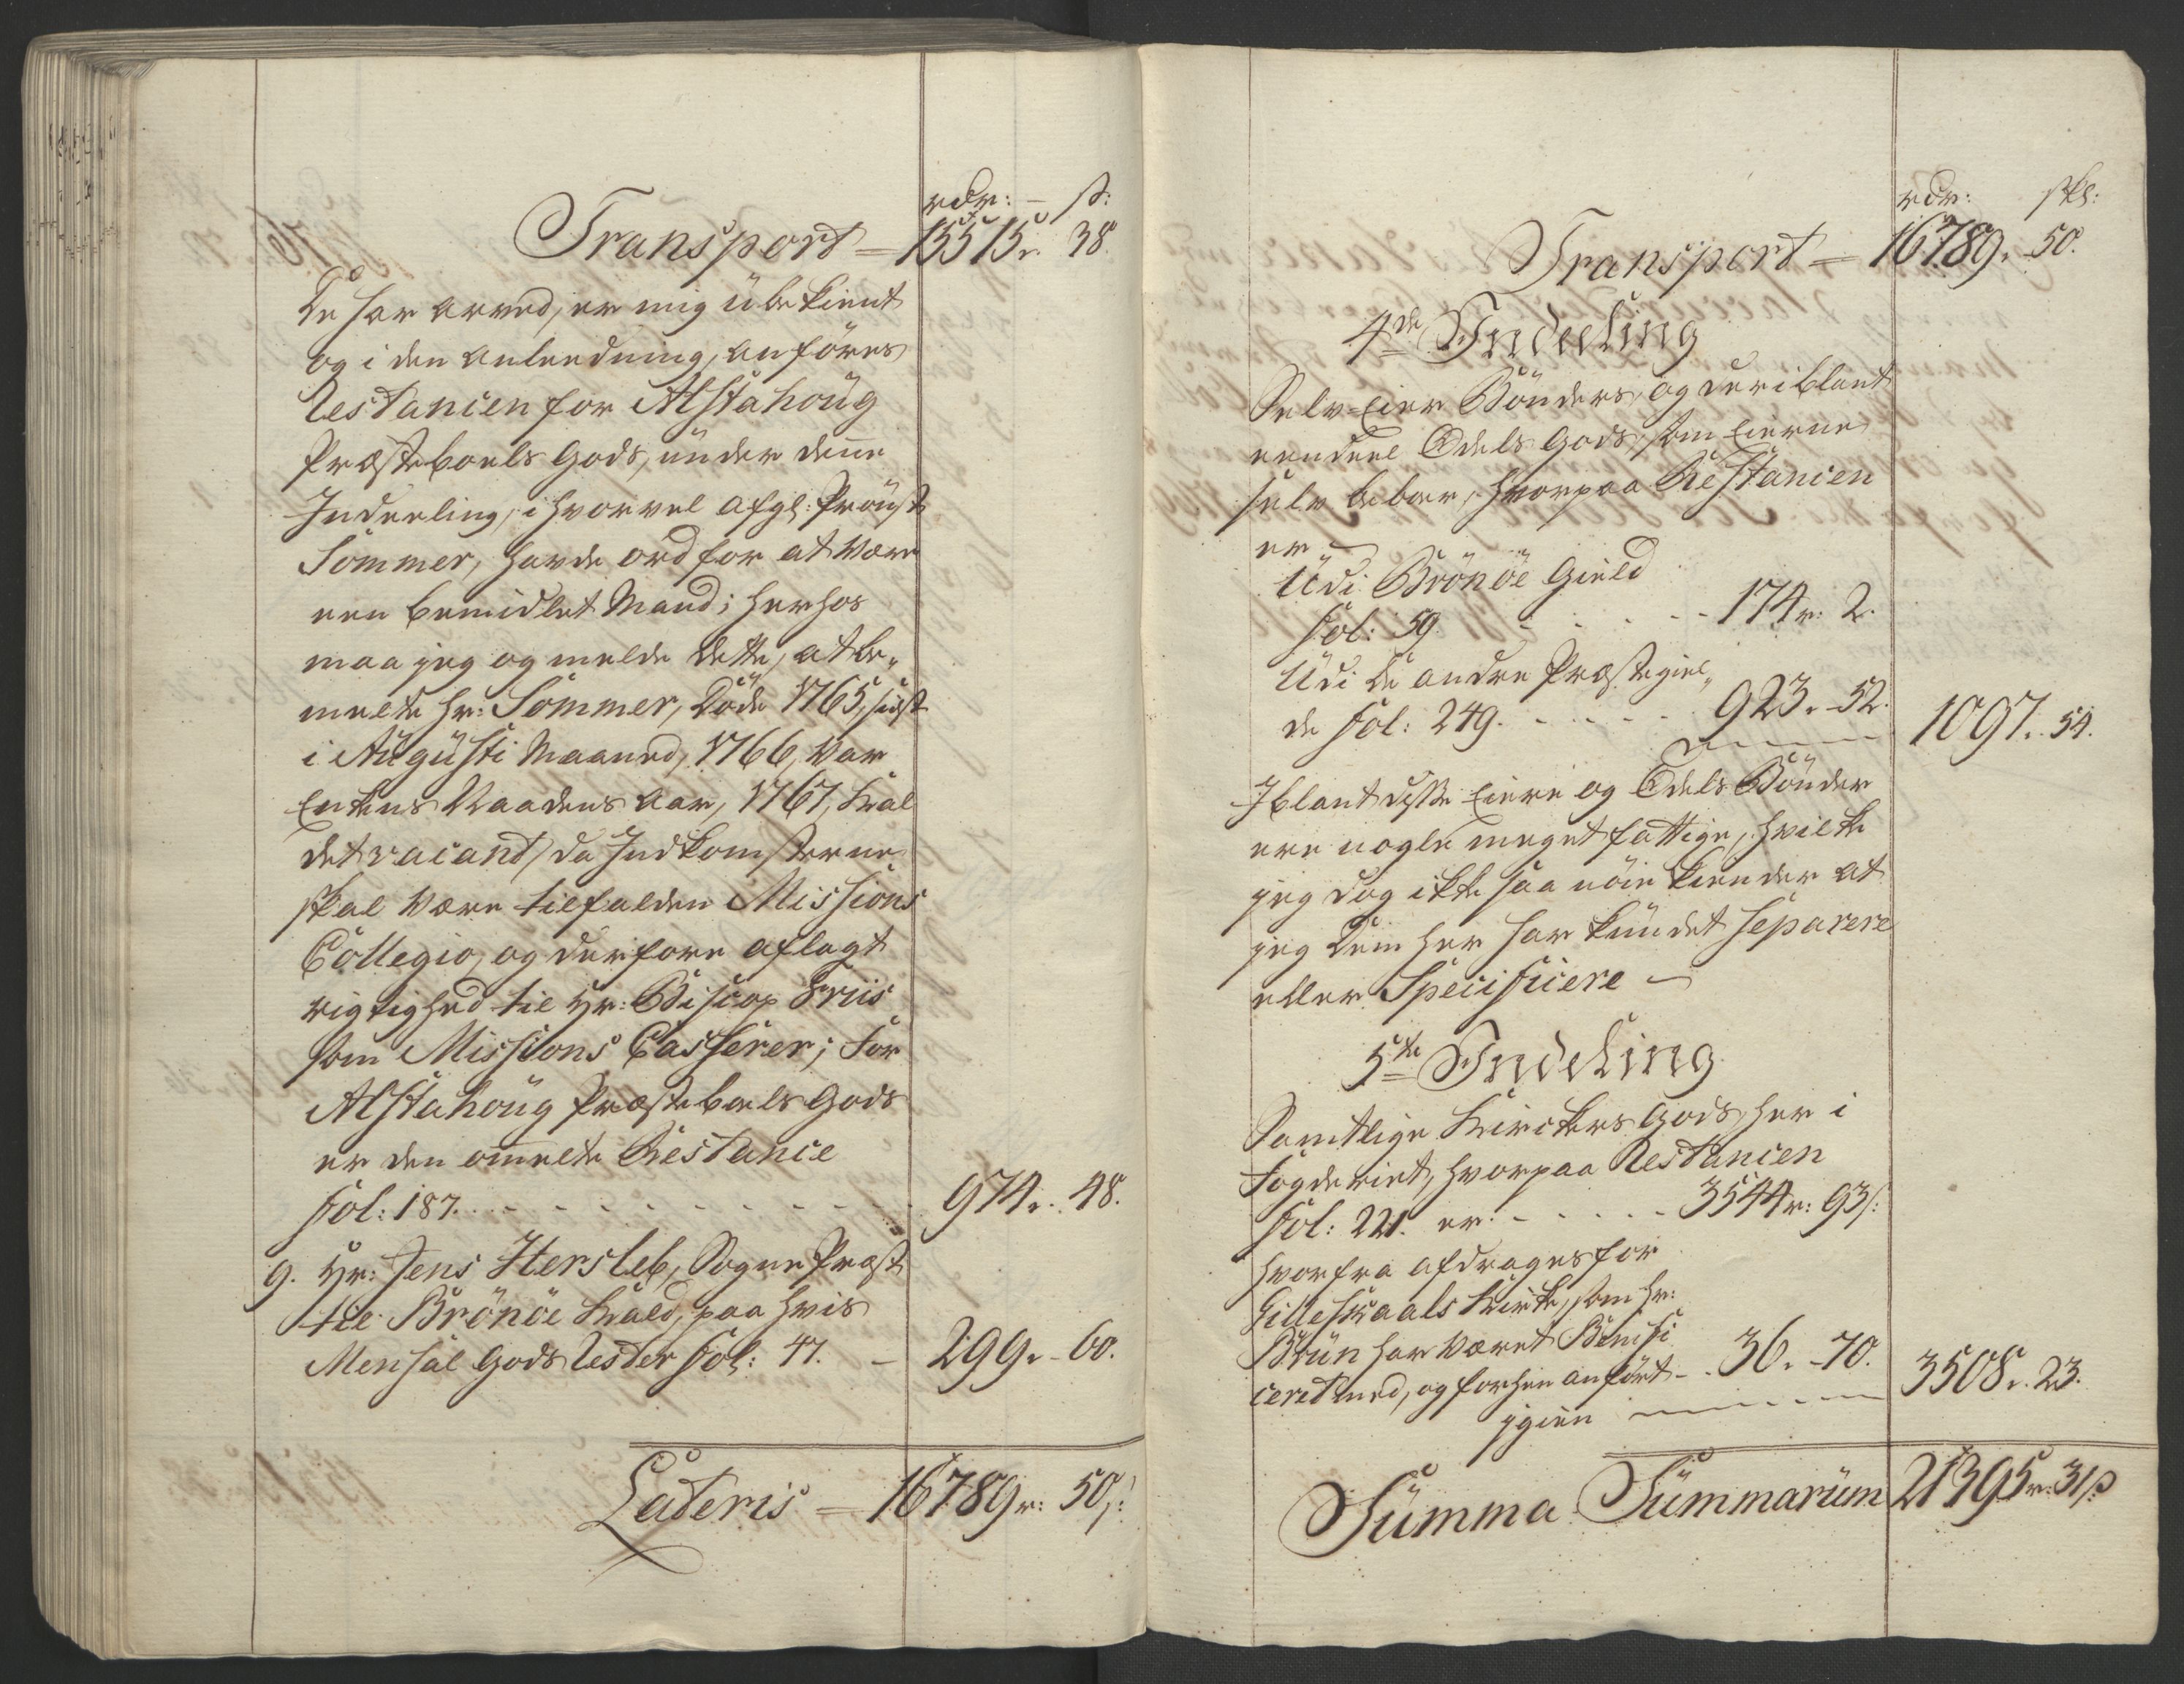 rdr: – s:
Transport = 15515r. 38.
De har arved, er mig übekient
og i den anleedning, anföres
Restancen for Alstahoüg
Præsteboels Gods, ünder denne
Indeeling, i hvorvel afgl: Proüst
Sommer, havde ord for at være
een bemidlet Mand; herhos
maa jeg og melde dette, at be„
melte Hr: Sommer, döde 1765, sidst
i Augüsti Maaned, 1766, var
Enkens Naadens Aar, 1767, Kal
det vacant, da Indkomsterne
skal være tilfalden Missions
Collegio, og derfore aflagt
rigtighed til Hr: Biscop Friis
som Missions Casserer; For
Alstahoüg Præsteboels Gods
er den ommelte Restance
fol: 187. - - - - - - - - - 974r. 48.
9. Hr: Jens Hersleb, Sogne Præst
til Brönöe Kald, paa hvis
Mensal Gods rester fol: 47. – 299r. 60.
Lateris = 16789r: 50s:
rdr: skl:
Transport = 16789. 50.
4de Indeeling
Selv-Eier Bönders, og deriblant
eendeel Odels Gods, som Eierne
selv beboer, hvorpaa Restancen
er –
Üdi Brönöe Gield
fol: 59. - - - - 174r: 2.
Üdi de andre Præstegiel„
de fol: 249. - - - - 923. 52. 1097. 54.
Iblant disse Eiere og Odels Bönder
ere nogle meget fattige, hvilke
jeg dog ikke saa nöie kiender at
jeg dem her har kündet separere
eller Specificere –
5te Indeling
Samtlige Kirkers Gods, her i
Fogderiet, hvorpaa Restancen
fol: 221. er - - - - 3544r: 93s:
hvorfra afdrages for
Gilleskaals Kirke, som Hr:
Brün har været Benifi
ceret med, og forhen anfört - . 36. 70. 3508r. 23.
igien
Summa Summarüm 21395r: 31s